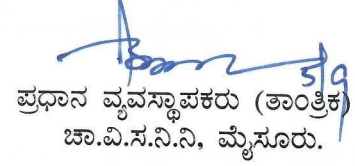 5/9
ಪ್ರಧಾನ ವ್ಯವಸ್ಥಾಪಕರು (ತಾಂತ್ರಿಕ)
ಚಾ.ವಿ.ಸ.ನಿ.ನಿ, ಮೈಸೂರು.